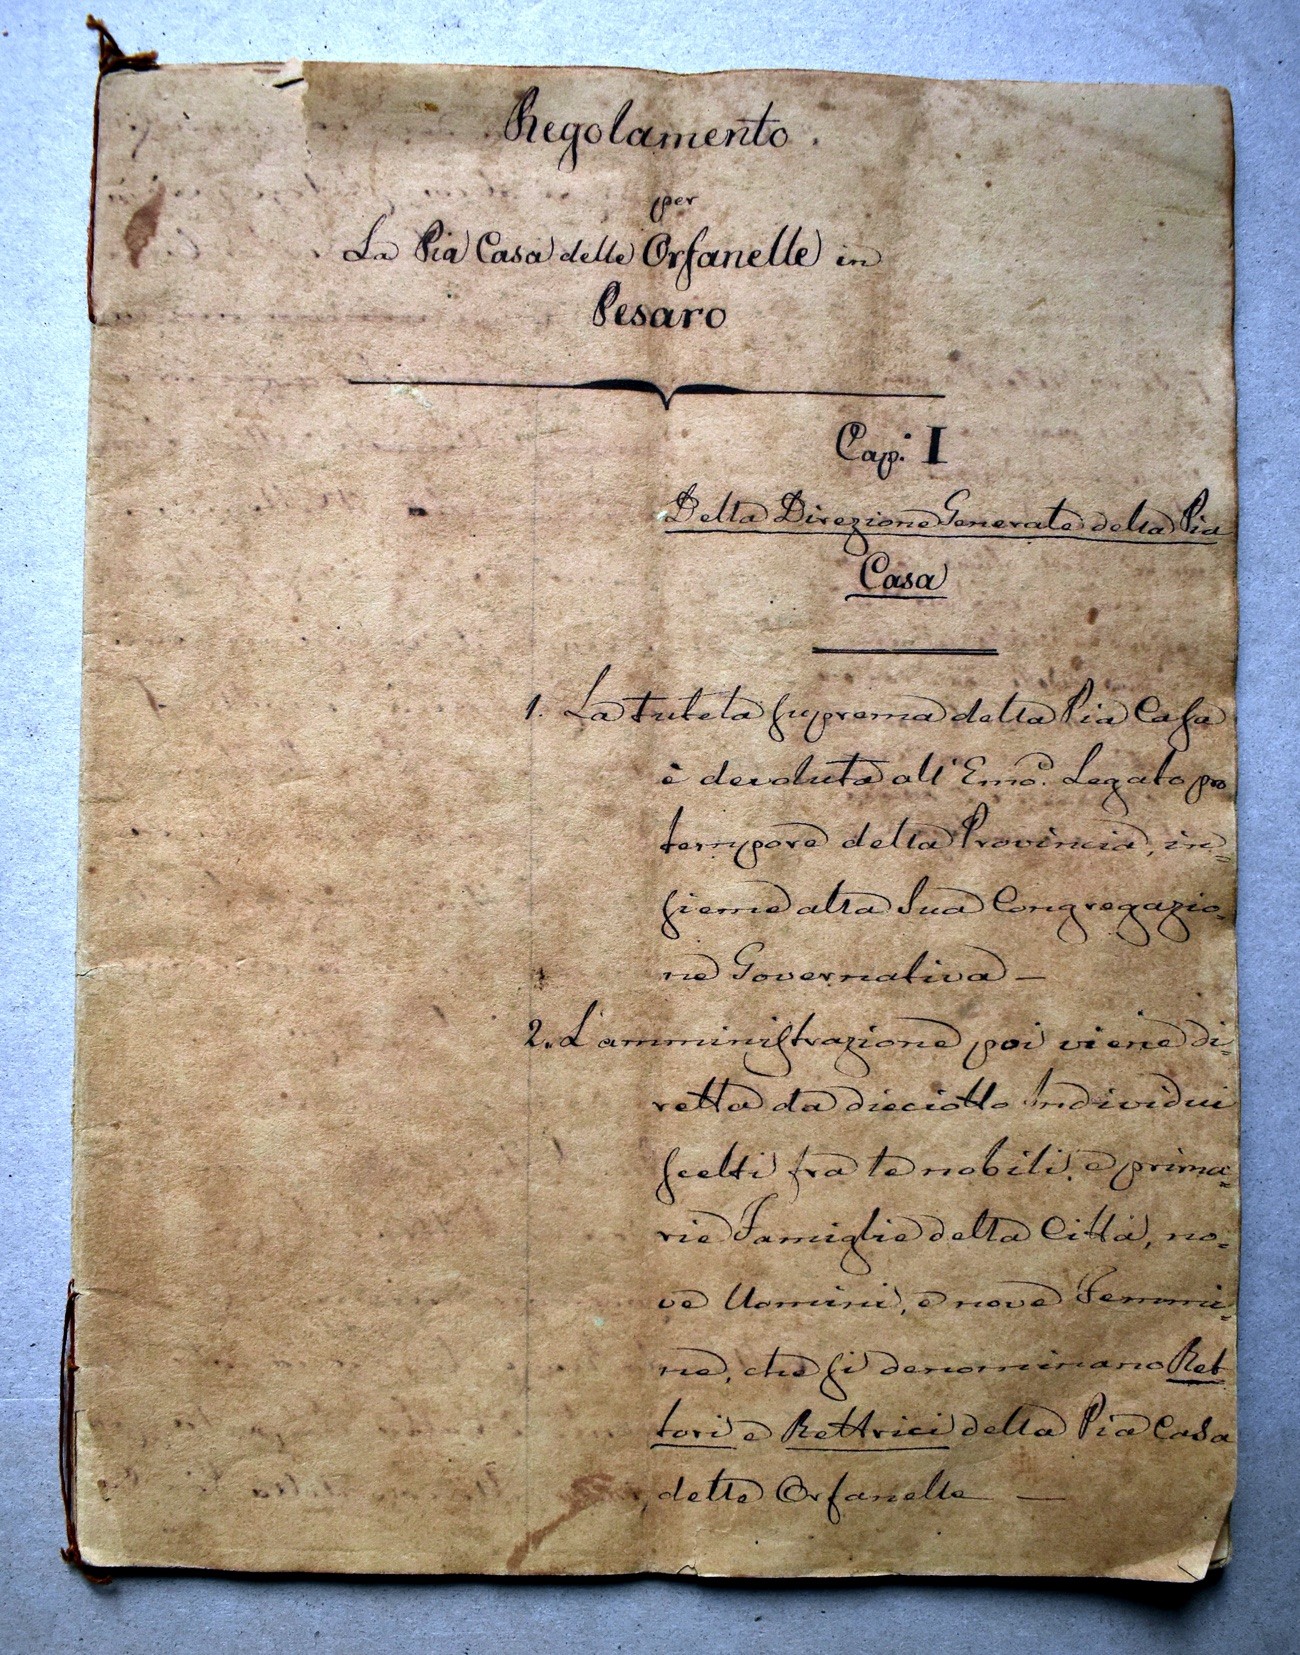 Regolamento.
per
La Pia Casa delle Orfanelle in
Pesaro
Cap: I
Della Direzione Generale della Pia
Casa
1. La tutela suprema della Pia Casa
è devoluta all'Emo. Legato pro
tempore della Provincia, in=
sieme alla Sua Congregazio=
ne Governativa —
2. L'amministrazione poi viene di=
retta da dieciotto Individui
scelti fra le nobili, e prima=
rie Famiglie della Città, no=
ve Uomini, e nove Femmi=
ne, che si denominano Ret
tori e Rettrici della Pia Casa
delle Orfanelle —